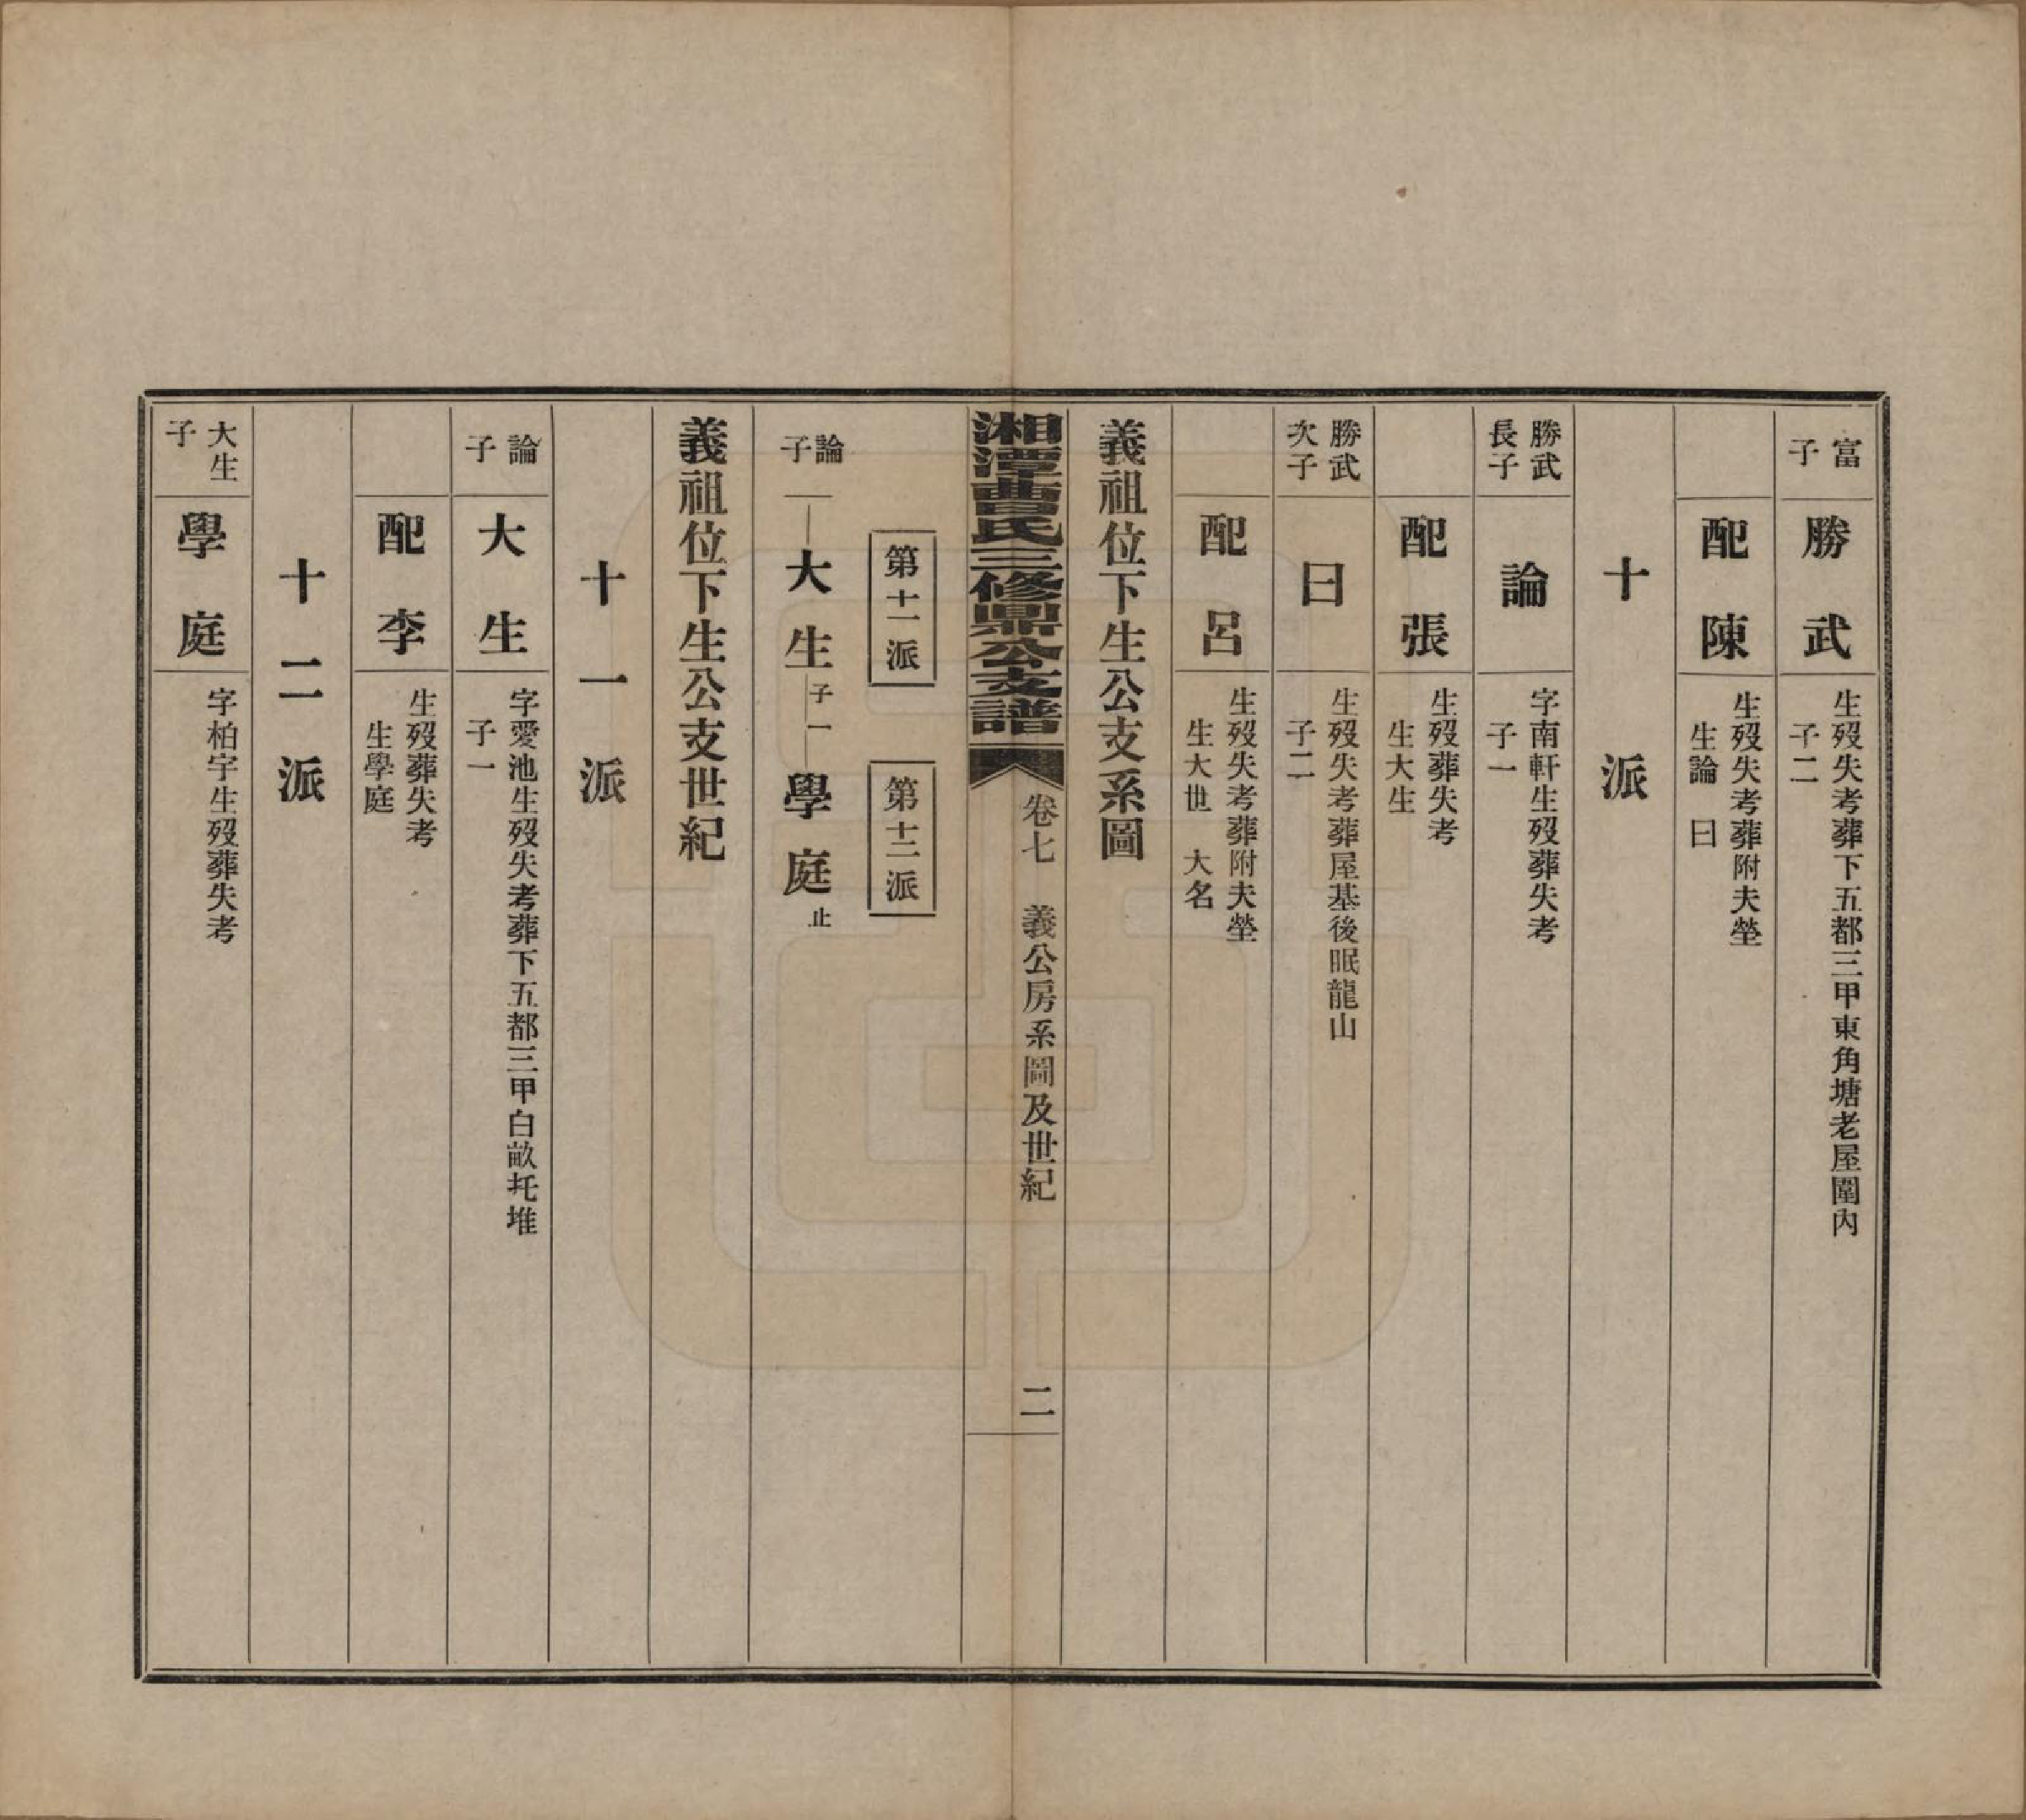 富子
勝武
生歿失考葬下五都三甲東角塘老屋圍內
子二
配陳
生歿失考葬附夫塋
生論　曰
十派
勝武長子
論
字南軒生歿葬失考
子一
配張
生歿葬失考
生大生
勝武次子
曰
生歿失考葬屋基後眠龍山
子二
配呂
生歿失考葬附夫塋
生大世　大名
義祖位下生公支系圖
湘潭曹氏三修鼎公支譜
卷七　義公房系圖及世紀
二
第十一派
第十二派
論子
大生
子一
學庭
止
義祖位下生公支世紀
十一派
論子
大生
字愛池生歿失考葬下五都三甲白畝圫堆
子一
配李
生歿葬失考
生學庭
十二派
大生子
學庭
字柏宇生歿葬失考